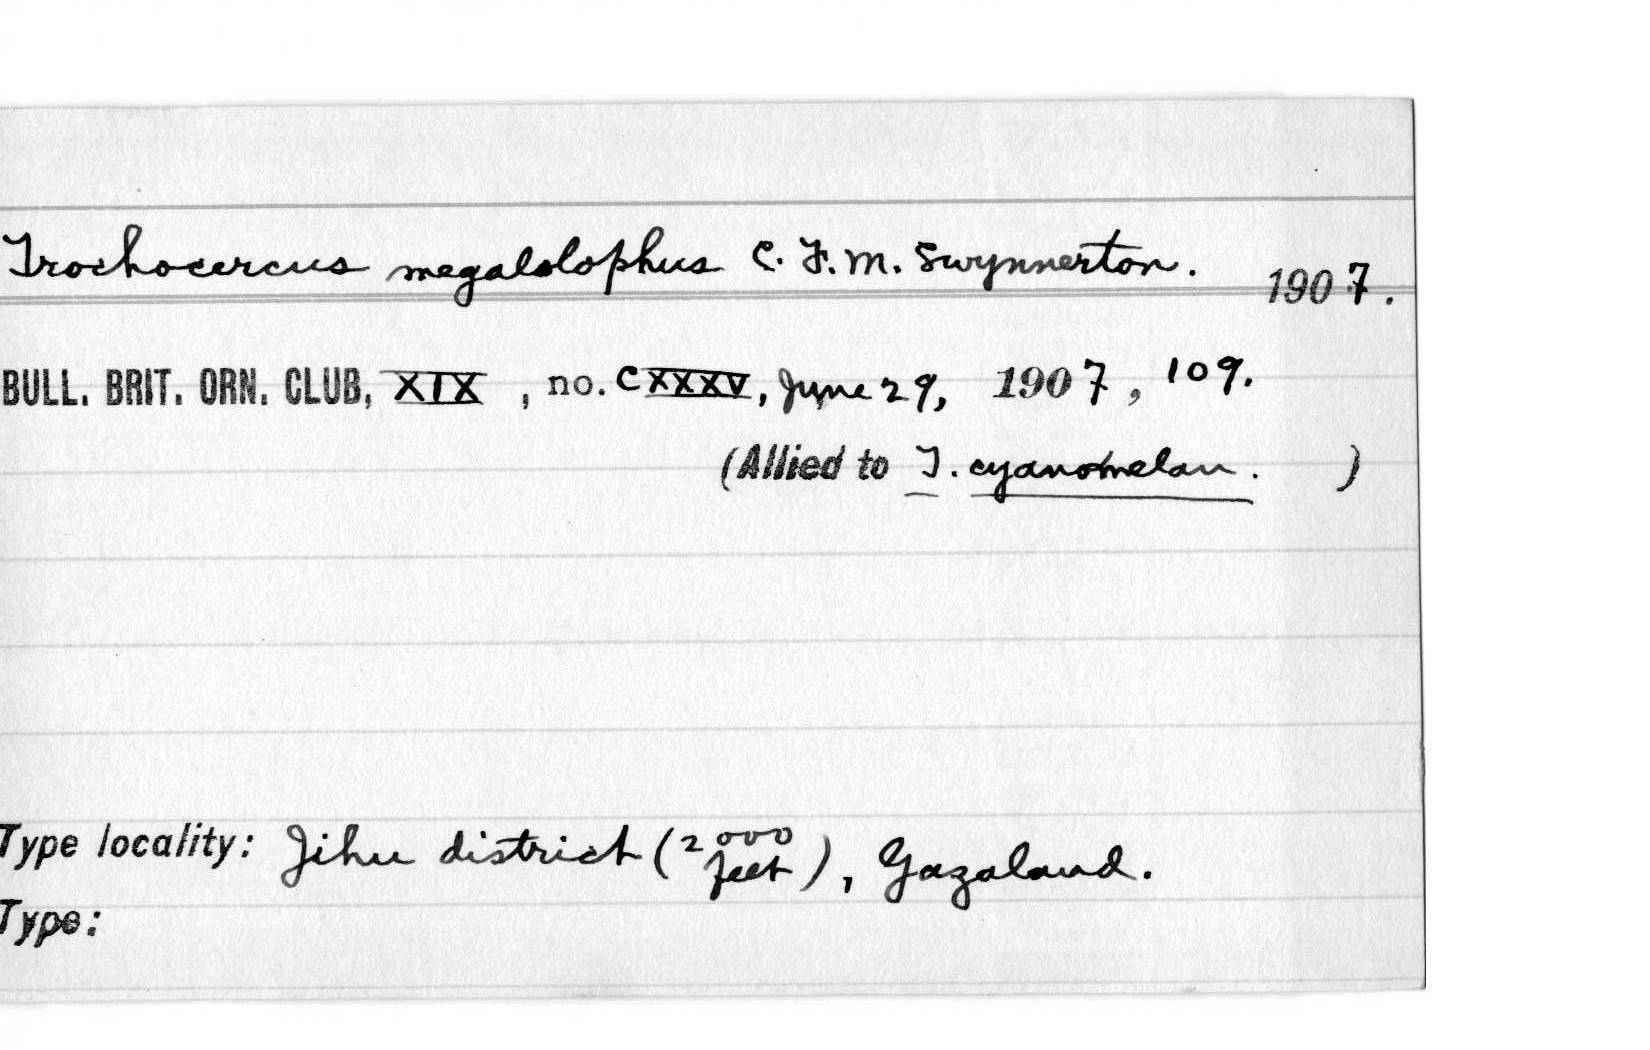 Trochocercus megalolophus C. F. M. Swynnerton. 1907.
BULL. BRIT. ORN. CLUB, XIX, no. CXXXV, June 29, 1907, 109.
(Allied to T. cyanomelan. )
Type locality: Jihu district (2000 feet), Gazaland.
Type: